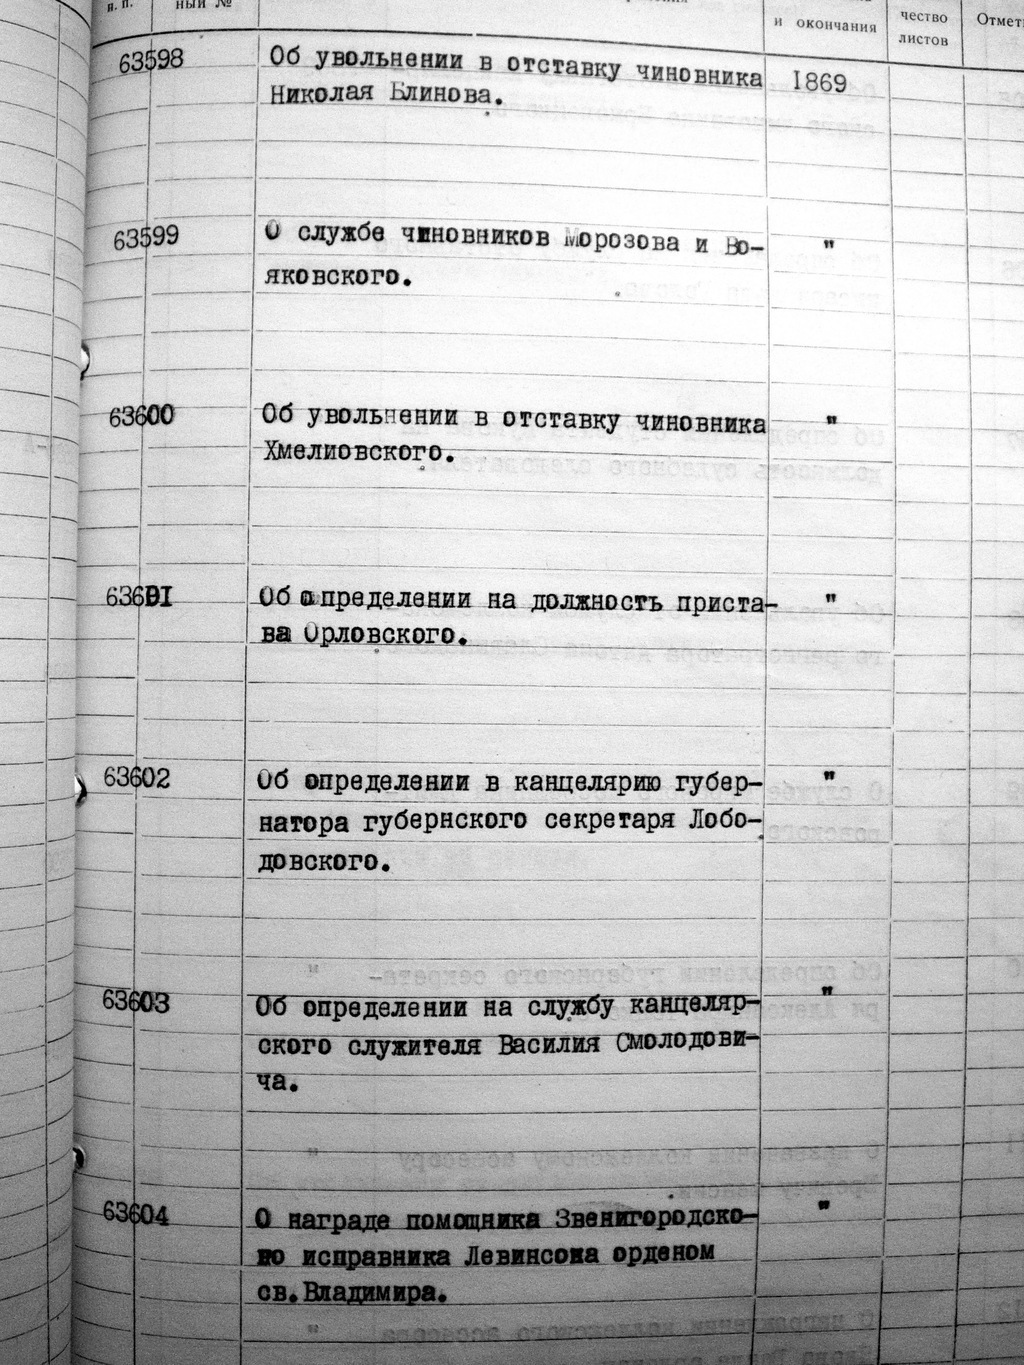 п. п.
ный №
и окончания
чество
листов
63598 Об увольнении в отставку чиновника 1869
Николая Блинова.
63599 О службе чиновников Морозова и Во- "
яковского.
63600 Об увольнении в отставку чиновника "
Хмелиовского.
63601 Об определении на должность приста- "
ва Орловского.
63602 Об определении в канцелярию губер- "
натора губернского секретаря Лобо-
довского.
63603 Об определении на службу канцеляр- "
ского служителя Василия Смолодови-
ча.
63604 О награде помощника Звенигородско- "
во исправника Левинсона орденом
св.Владимира.